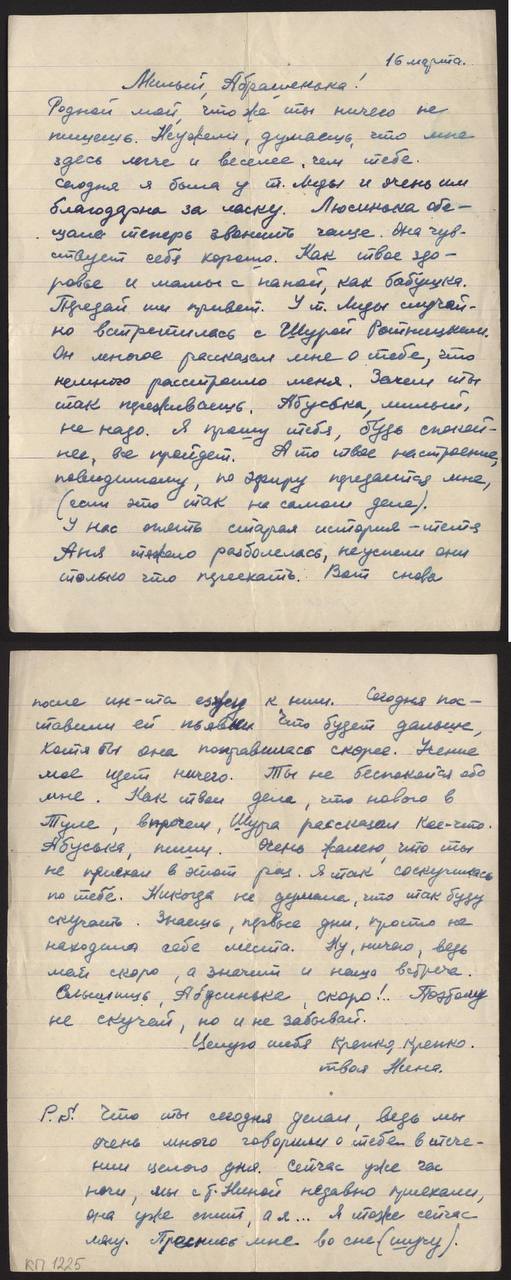 16 марта.
Милый, Абрашенька!
Родной мой, что же ты ничего не
пишешь. Неужели, думаешь, что мне
здесь легче и веселее, чем тебе.
Сегодня я была у т. Лиды и очень им
благодарна за ласку. Люсинька обе-
щала теперь звонить чаще. Она чув-
ствует себя хорошо. Как твое здо-
ровье и мамы с папой, как бабушка.
Передай им привет. У т. Лиды случай-
но встретилась с Шурой Ротницким.
Он многое рассказал мне о тебе, что
немного расстроило меня. Зачем ты
так переживаешь. Абуська, милый,
не надо. Я прошу тебя, будь спокой-
нее, все пройдет. А то твое настроение,
повидимому, по эфиру передается мне,
(если это так на самом деле).
У нас опять старая история – тетя
Аня тяжело разболелась, не успели они
только что переехать. Вот снова
после ин-та езжу к ним. Сегодня пос-
тавили ей пьявки. Что будет дальше,
хотя бы она поправилась скорее. Учение
мое идет ничего. Ты не беспокойся обо
мне. Как твои дела, что нового в
Туле, впрочем, Шура рассказал кое-что.
Абуська, пиши. Очень жалею, что ты
не приехал в этот раз. Я так соскучилась
по тебе. Никогда не думала, что так буду
скучать. Знаешь, первые дни, просто не
находила себе места. Ну, ничего, ведь
май скоро, а значит и наша встреча.
Слышишь, Абусинька, скоро!.. Поэтому
не скучай, но и не забывай.
Целую тебя крепко, крепко.
твоя Нина.
P.S. Что ты сегодня делал, ведь мы
очень много говорили о тебе в тече-
нии целого дня. Сейчас уже час
ночи, мы с т. Ниной недавно приехали,
она уже спит, а я... Я тоже сейчас
лягу. Приснись мне во сне (шучу).
КП 1225